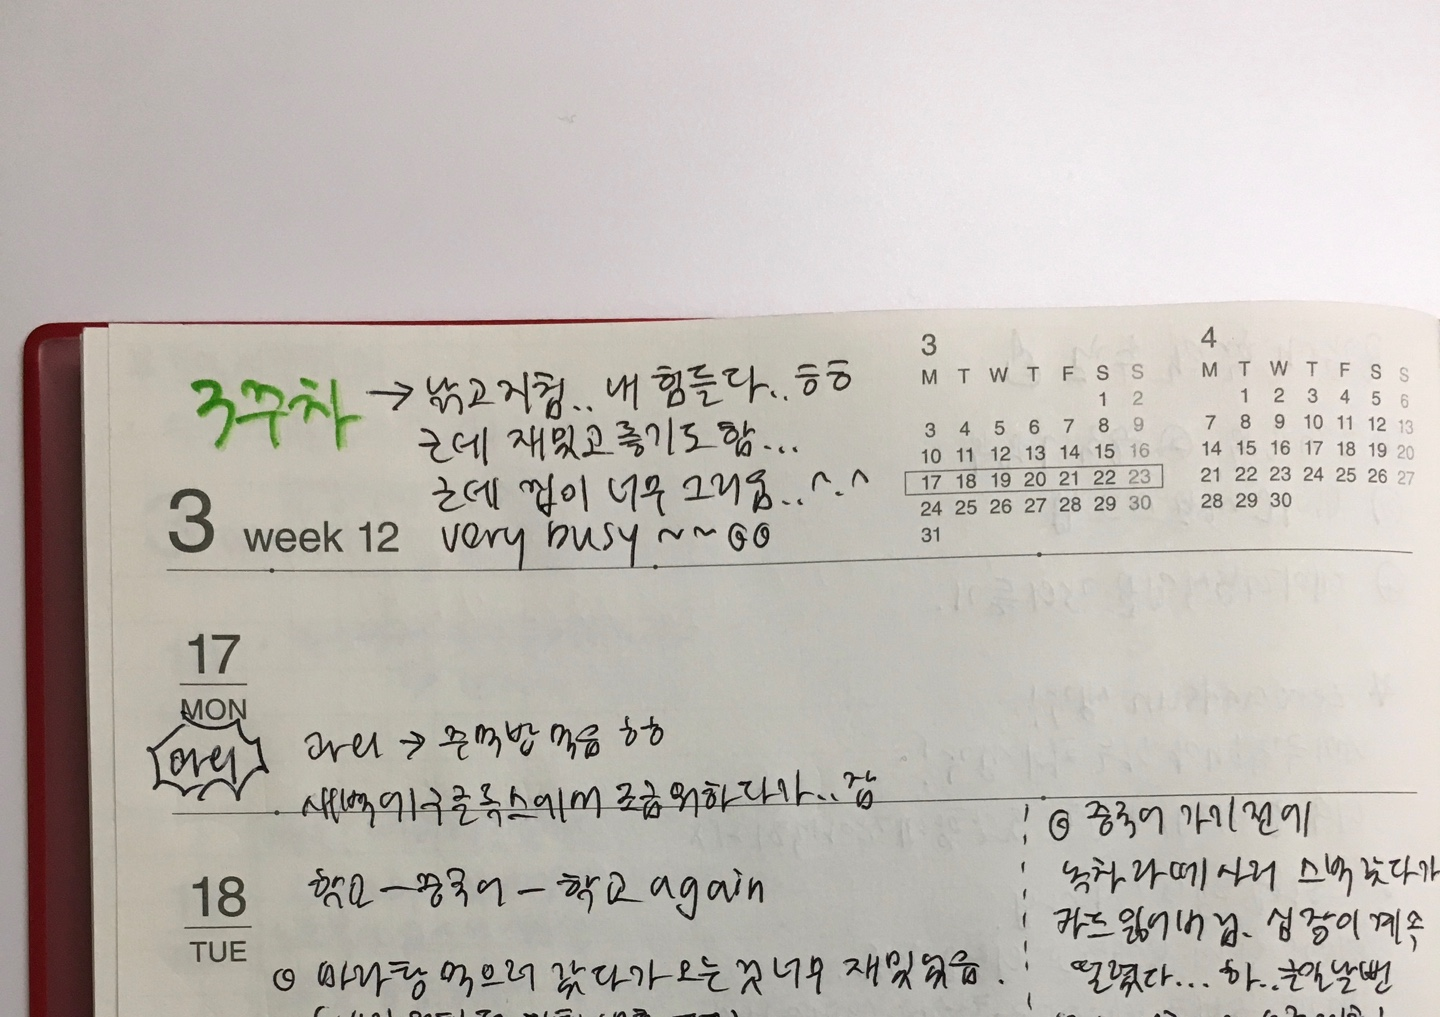 3주차 → 늙고지침.. 내 힘들다.. ㅎㅎ
근데 재밌고 즐기도 함...
근데 집이 너무 그리움..^.^
very busy ~~
3 week 12
3
M T W T F S S
1 2
3 4 5 6 7 8 9
10 11 12 13 14 15 16
17 18 19 20 21 22 23
24 25 26 27 28 29 30
31
4
M T W T F S S
1 2 3 4 5 6
7 8 9 10 11 12 13
14 15 16 17 18 19 20
21 22 23 24 25 26 27
28 29 30
17
MON
과외
과외 → 주먹밥 먹음 ㅎㅎ
새벽에 구글독스에서 조금 하다가.. 잠
18
TUE
학교 - 중국어 - 학교 again
마라탕 먹으러 갔다가 오는 것 너무 재밌었음.
중국어 가기전에
녹차라떼 사러 스벅 갔다가
카드 잃어버림. 심장이 계속
떨렸다... 하.. 큰일날뻔